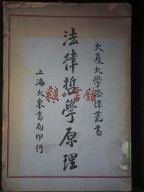 大夏大學法律叢書
法律哲學原理
上海大東書局印行